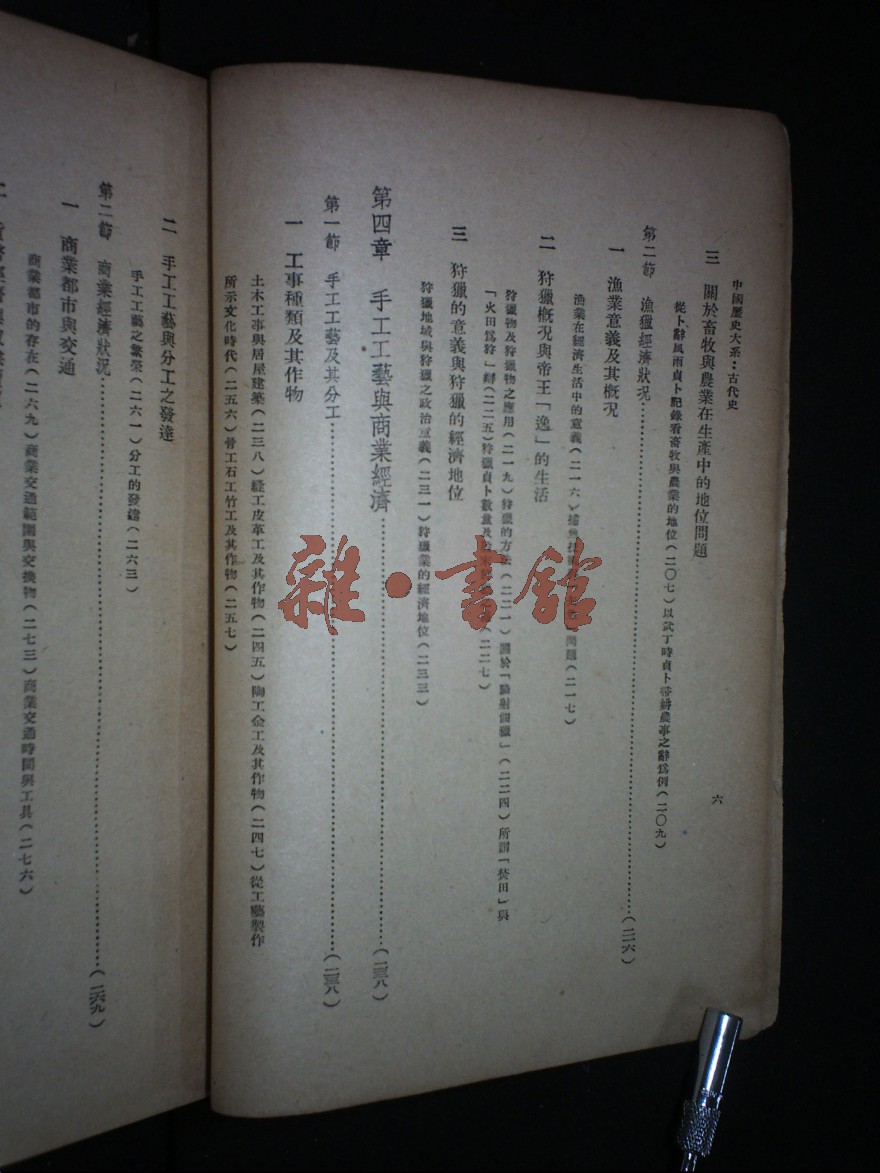 中國歷史大系：古代史
六
三　關於畜牧與農業在生產中的地位問題
從卜辭風雨貞卜記錄看畜牧與農業的地位（二〇七）以武丁時貞卜帚妌農事之辭爲例（二〇九）
第二節　漁獵經濟狀况……（二一六）
一　漁業意義及其概况
漁業在經濟生活中的意義（二一六）問題（二一七）
二　狩獵概况與帝王「逸」的生活
狩獵物及狩獵物之應用（二一九）狩獵的方法（二二一）關於「騎射佃獵」（二二四）所謂「焚田」與
「火田爲狩」辯（二二五）狩獵貞卜數量及（二二七）
三　狩獵的意義與狩獵的經濟地位
狩獵地域與狩獵之政治意義（二三一）狩獵業的經濟地位（二三三）
第四章　手工工藝與商業經濟……（二三八）
第一節　手工工藝及其分工……（二三八）
一　工事種類及其作物
土木工事與居屋建築（二三八）縫工皮革工及其作物（二四五）陶工金工及其作物（二四七）從工藝製作
所示文化時代（二五六）骨工石工竹工及其作物（二五七）
二　手工工藝與分工之發達
手工工藝之繁榮（二六一）分工的發達（二六三）
第二節　商業經濟狀况……（二六九）
一　商業都市與交通
商業都市的存在（二六九）商業交通範圍與交換物（二七三）商業交通時間與工具（二七六）
雜·書館